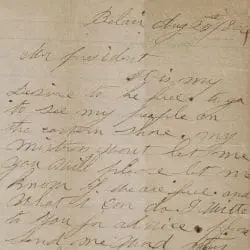 Belair Aug 25th 1864
Mr president
It is my
Desire to be free. to go
to see my people on
the eastern shore. my
mistress wont let me
you will please let me
know if we are free. and
what i can do. I write
to you for advice.
send me word this